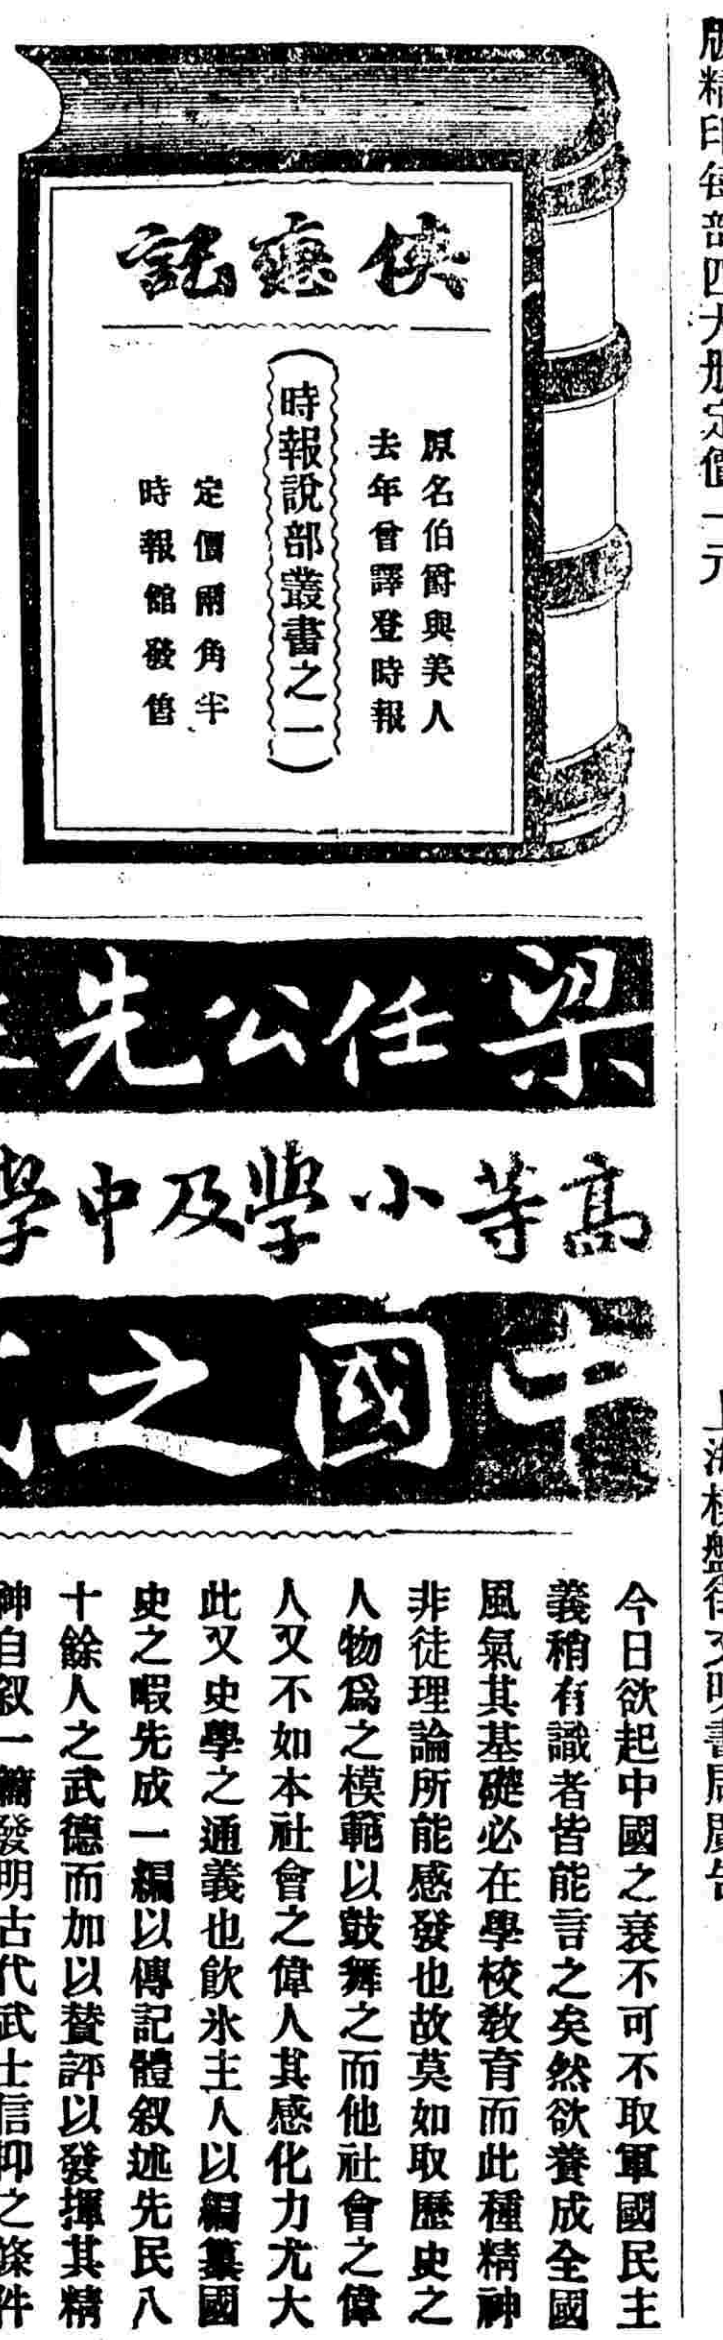 版精印每部四大册定價一元
上海棋盤街文明書局廣告
俠戀記
原名伯爵與美人
去年曾譯登時報
（時報說部叢書之一）
定價兩角半
時報館發售
梁任公先
高等小學及中學
中國之
今日欲起中國之衰不可不取軍國民主
義稍有識者皆能言之矣然欲養成全國
風氣其基礎必在學校教育而此種精神
非徒理論所能感發也故莫如取歷史之
人物爲之模範以鼓舞之而他社會之偉
人又不如本社會之偉人其感化力尤大
此又史學之通義也飲氷主人以編纂國
史之暇先成一編以傳記體叙述先民八
十餘人之武德而加以贊評以發揮其精
神自叙一篇發明古代武士信仰之條件